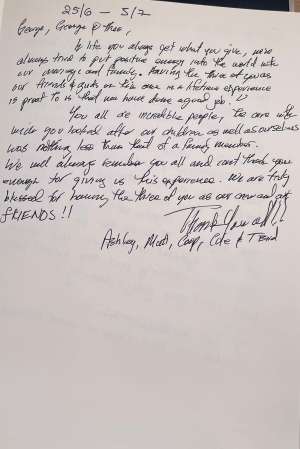 25/6 - 5/7
George, George & Theo,
In life you always get what you give, we've
always tried to put positive energy into the world with
our marriage and family, having the three of you as
our friends & guides on this once in a lifetime experience
is proof to us that we have done a good job.
You all are incredible people, the care with
wich you looked after our children as well as ourselves
was nothing less than that of a family member.
We will always remember you all and cant thank you
enough for giving us this experience. We are truly
blessed for having the three of you as our crew and
FRIENDS!!
Thank you all!
Ashley, Matt, Cole & T Bird